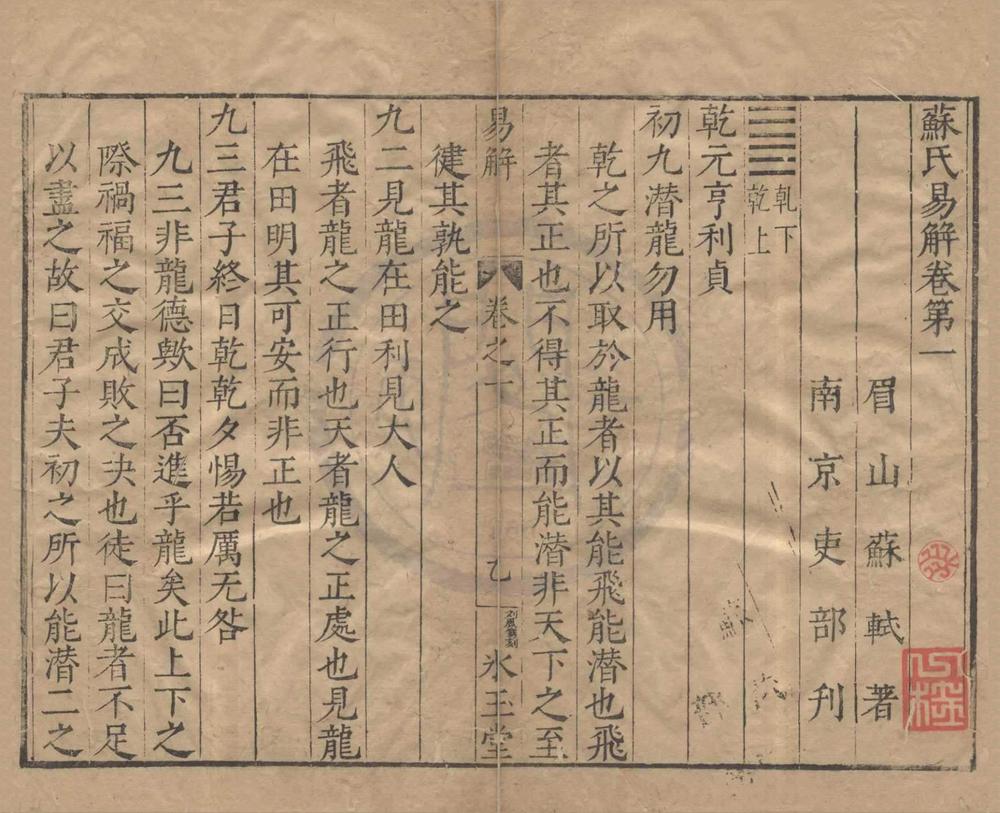 蘇氏易解卷第一
眉山蘇軾著
南京吏部刋
乾下
乾上
乾元亨利貞
初九潛龍勿用
乾之所以取於龍者以其能飛能潛也飛
者其正也不得其正而能潛非天下之至
健其孰能之
易解
卷之一
乙
冰玉堂
九二見龍在田利見大人
飛者龍之正行也天者龍之正處也見龍
在田明其可安而非正也
九三君子終日乾乾夕惕若厲无咎
九三非龍德歟曰否進乎龍矣此上下之
際禍福之交成敗之决也徒曰龍者不足
以盡之故曰君子夫初之所以能潛二之